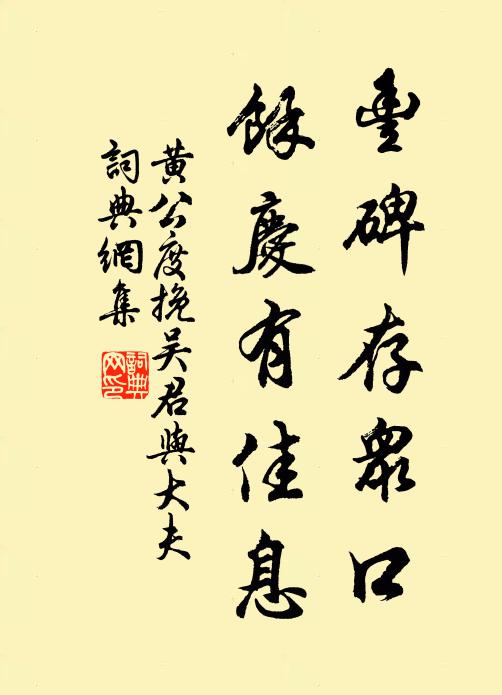 豐碑存衆口
餘慶有佳息
黄公度挽吴君與大夫
詞典網集
詞典网印